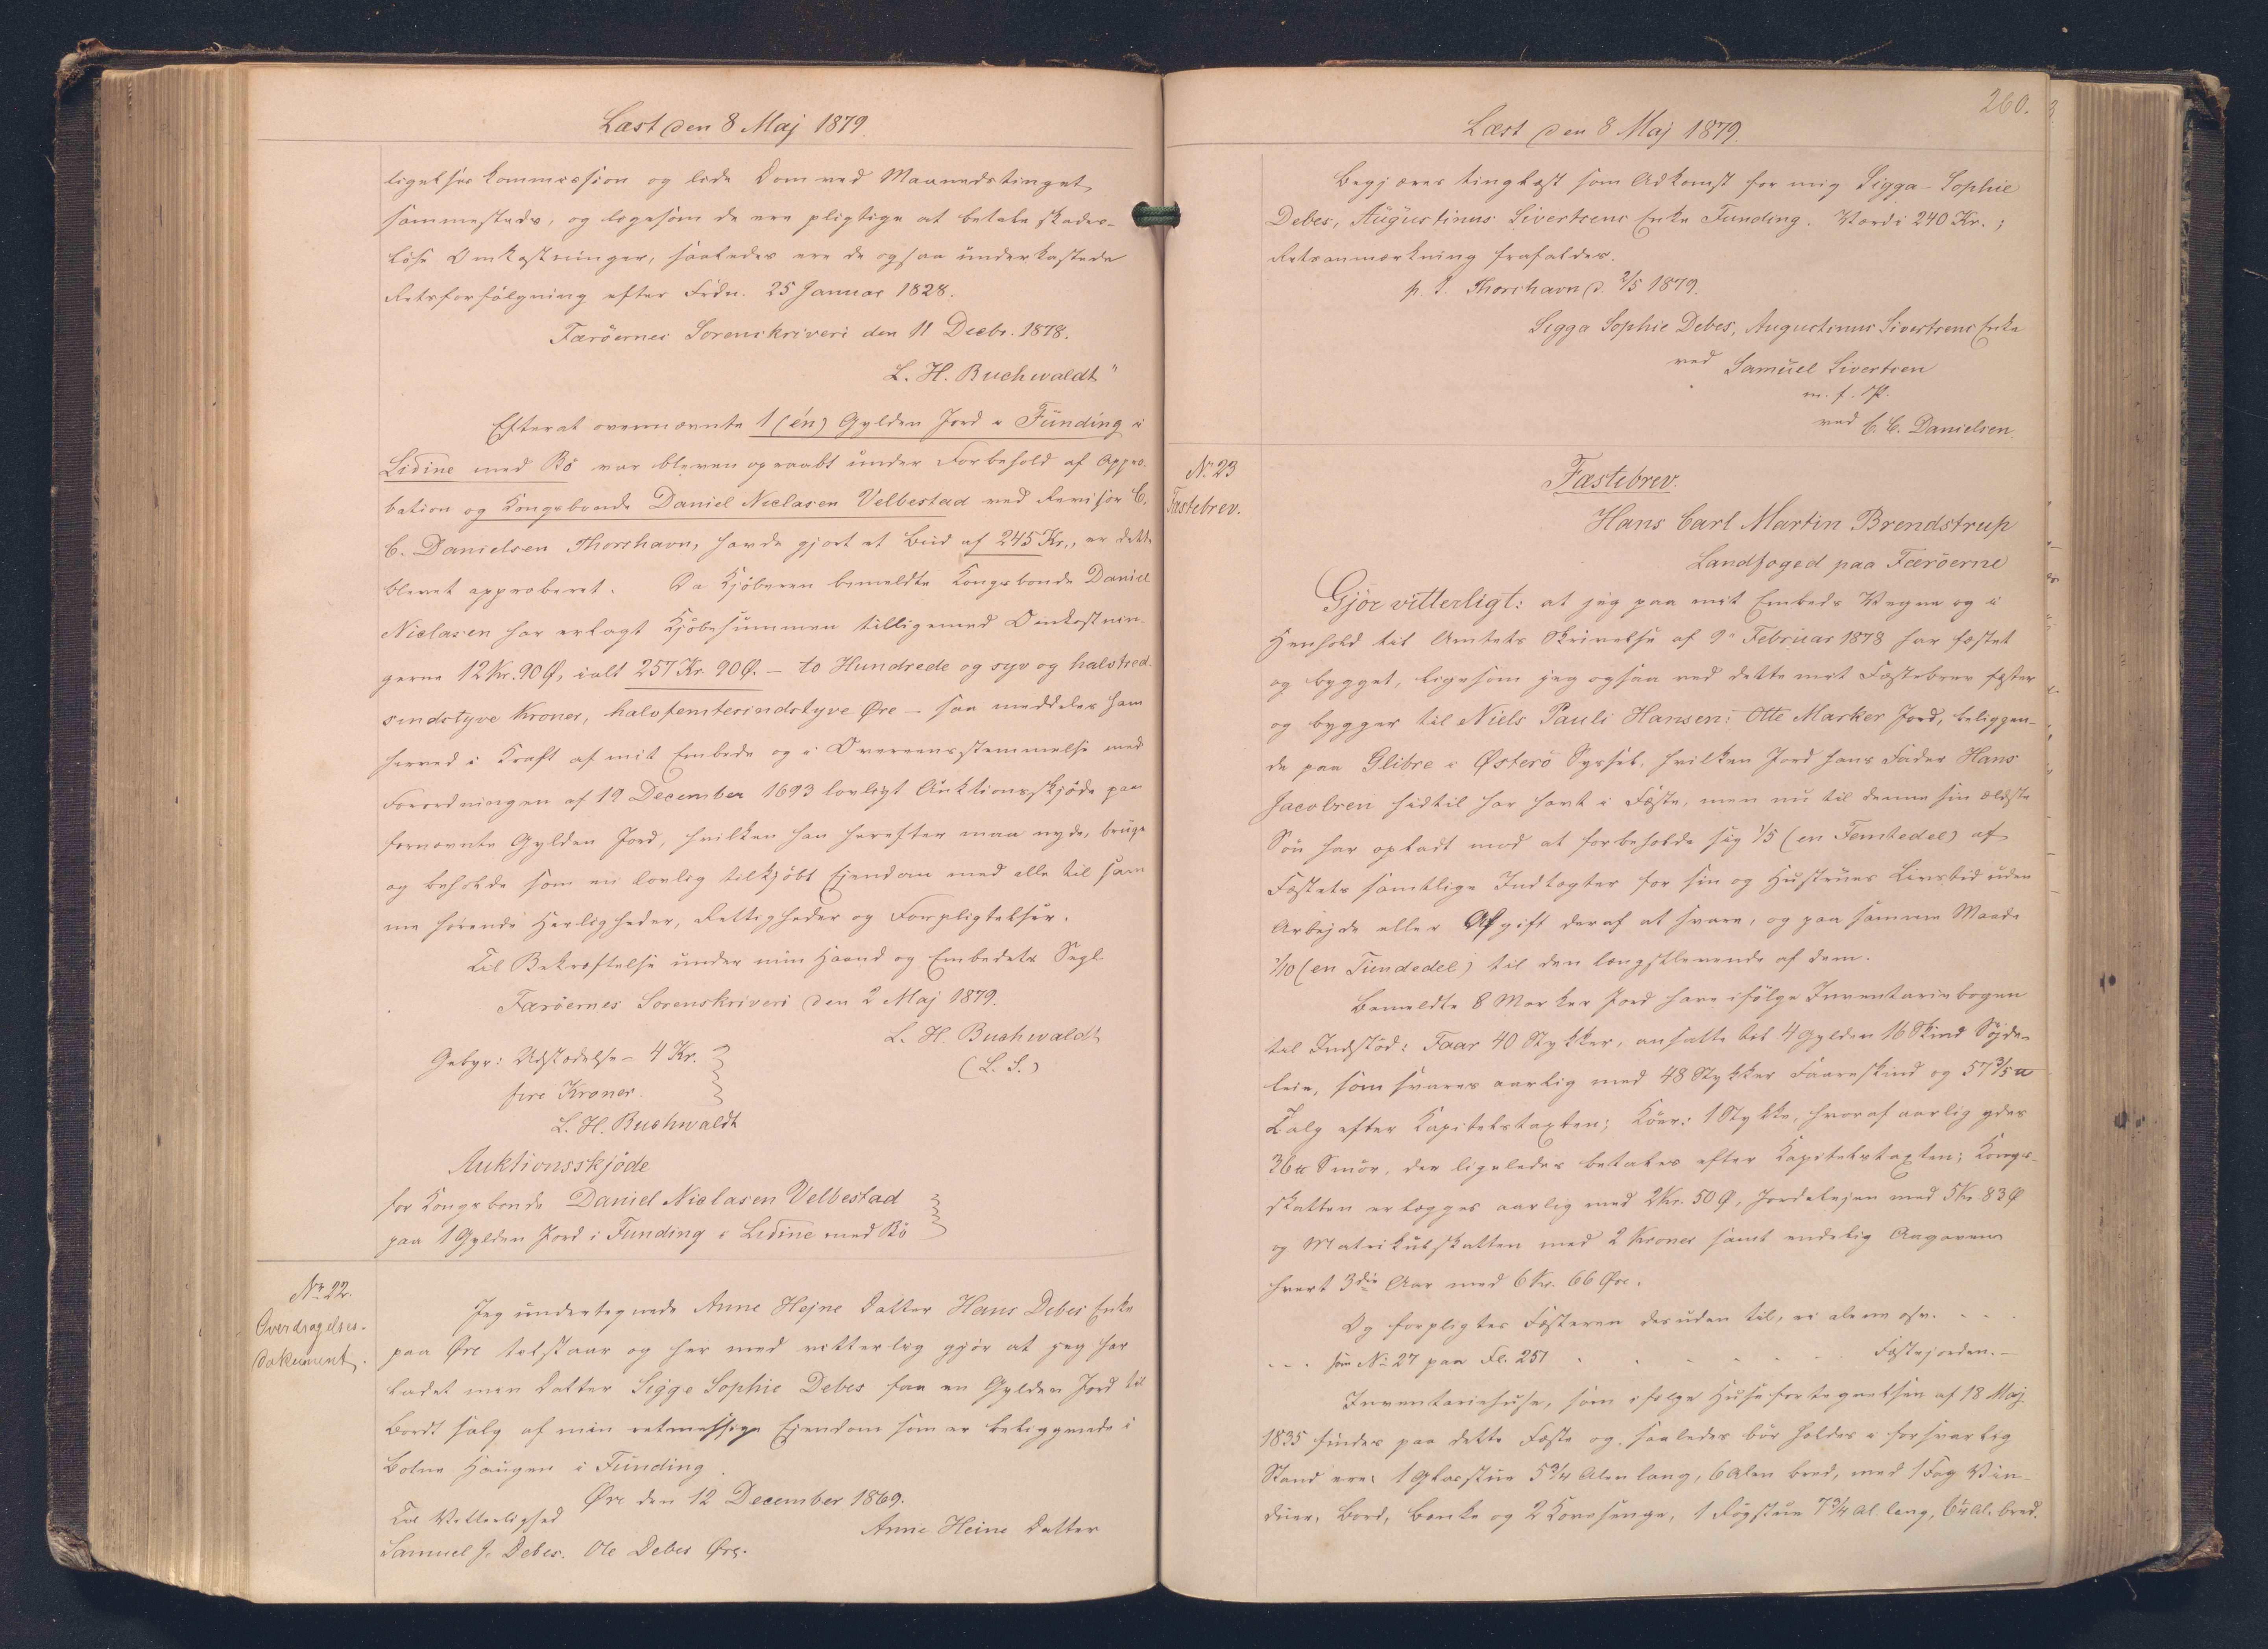 Læst den 8 Maj 1879.
ligelses kommission og lide Dom ved Maanedstinget
sammesteds, og ligesom de ere pligtige at betale skades-
löse Omkostninger, saaledes ere de ogsaa underkastede
Retsforfølgning efter Frdn. 25 Januar 1828.
Færöernes Sorenskriveri den 11 Decbr. 1878.
L. H. Buchwaldt"
Efterat ovennævnte 1 (én) Gylden Jord i Funding i
Lidine med Bö var bleven opraabt under Forbehold af Appro-
bation og Kongsbonde Daniel Niclasen Velbestad ved Revisor C.
C. Danielsen Thorshavn, havde gjort et Bud af 245 Kr., er dette
blevet approberet. Da Kjöberen bemeldte Kongsbonde Daniel
Niclasen har erlagt Kjöbesummen tilligemed Omkostnin-
gerne 12 Kr. 90 Ø, ialt 257 Kr. 90 Ø. - to Hundrede og syv og halvtred-
sindstyve Kroner, halvfemtesindstyve Øre - saa meddeles ham
herved i Kraft af mit Embede og i Overensstemmelse med
Forordningen af 19 December 1693 lovligt Auktionsskjöde paa
fornævnte Gylden Jord, hvilken han herefter maa nyde, bruge
og beholde som en lovlig tilkjöbt Ejendom med alle til sam
me hörende Herligheder, Rettigheder og Forpligtelser.
Til Bekræftelse under min Haand og Embedets Segl.
Færöernes Sorenskriveri den 2 Maj 1879.
L. H. Buchwaldt
(L. S.)
Gebyr: Udstædelse - 4 Kr.
fire Kroner.
L. H. Buchwaldt
Auktionsskjöde
for Kongsbonde Daniel Niclasen Velbestad
paa 1 Gylden Jord i Funding i Lidine med Bö
No 22.
Overdragelses-
dokument.
Jeg undertegnede Anne Hejne Datter Hans Debes Enke
paa Øre tilstaar og her med vitterlig gjör at jeg har
ladet min Datter Sigge Sophie Debes faa en Gylden Jord til
Bordt salg af min retmessige Ejendom som er beliggende i
Botne Haugen i Funding.
Øre den 12 December 1869.
Til Vitterlighed
Anne Heine Datter
Samuel J. Debes. Ole Debes Øre.
260.
Læst den 8 Maj 1879.
Begjæres tinglæst som Adkomst for mig Sigga-Sophie
Debes, Augustinus Sivertsens Enke Funding. Værdi 240 Kr.;
Retsanmærkning frafaldes.
p. t. Thorshavn d. 2/5 1879.
Sigga Sophie Debes, Augustinus Sivertsens Enke
ved Samuel Sivertsen
m. f. P.
ved C. C. Danielsen.
No 23
Fæstebrev.
Fæstebrev.
Hans Carl Martin Brendstrup
Landfoged paa Færöerne
Gjör vitterligt: at jeg paa mit Embeds Vegne og i
Henhold til Amtets Skrivelse af 9de Februar 1878 har fæstet
og bygget, ligesom jeg ogsaa ved dette mit Fæstebrev fæster
og bygger til Niels Pauli Hansen: Otte Marker Jord, beliggen-
de paa Glibre i Østerö Syssel, hvilken Jord hans Fader Hans
Jacobsen hidtil har havt i Fæste, men nu til denne sin ældste
Sön har opladt mod at forbeholde sig 1/5 (en Femtedel) af
Fæstets samtlige Indtægter for sin og Hustrues Livstid uden
Arbejde eller Afgift deraf at svare, og paa samme Maade
1/10 (en Tiendedel) til den længstlevende af dem.
Bemeldte 8 Marker Jord have ifölge Inventariebogen
til Indstöd: Faar 40 Stykker, ansatte til 4 Gylden 16 Skind Söjde-
leie, som svares aarlig med 48 Stykker Faareskind og 57 3/5 ℔
Talg efter Kapitelstaxten; Köer: 1 Stykke, hvoraf aarlig ydes
36 ℔ Smör, der ligeledes betales efter Kapitelstaxten; Kongs-
skatten erlægges aarlig med 2 Kr. 50 Ø, Jordelejen med 5 Kr. 83 Ø
og Matrikulskatten med 2 Kroner samt endelig Aagaven
hvert 3die Aar med 6 Kr. 66 Øre.
Og forpligtes Fæsteren desuden til, ei alene osv. - - -
- - - som No 27 paa Fl. 251 - - - - - - Fæstejorden. -
Inventariehuse, som ifölge Husefortegnelsen af 18 Maj
1835 findes paa dette Fæste og saaledes bör holdes i forsvarlig
Stand ere: 1 Glasstue 5 3/4 Alen lang, 6 Alen bred, med 1 Fag Vin-
duer, Bord, Bænke og 2 Kovesenge, 1 Rögstue 7 3/4 Al. lang, 6 1/4 Al. bred.